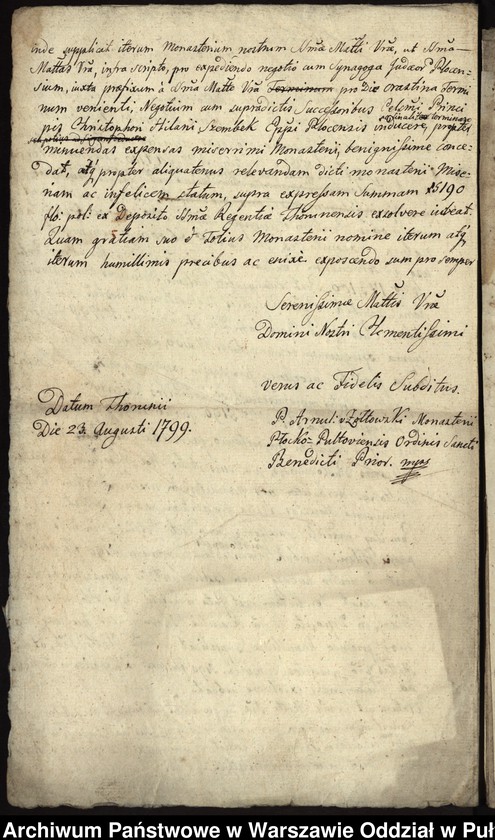 inde supplicat iterum Monasterium nostrum Sma Matti Vra, ut Sma
Mattas Vra, infra scripto, pro expediendo negotio cum Synagoga Judæor Plocen-
sium, juxta præfixum à Sma Matte Vra Terminum pro die crastina Termi-
num venienti, Negotium cum supradictis Successoribus Celsmi Princi
pis Christophori Hilarii Szembek Eppi Plocensis inducere, finaliter terminare propter
minuendas expensas miserrimi Monasterii, benignissime conce-
dat, atq propter aliquatenus relevandam dicti monasterii Mise-
riam ac infelicem statum, supra expressam Summam 5190
flo: pol: ex Deposito Sma Regentia Thorunensis exsolvere jubeat.
Quam gratiam suo & Totius Monasterii nomine iterum atq
iterum humillimis precibus ac enixe exposcendo sum pro semper
Serenissimæ Mattis Vræ
Domini Nostri Clementissimi
verus ac Fidelis Subditus.
Datum Thorunii
Die 23 Augusti 1799.
P. Arnul. Zołtowski Monasterii
Płocko-Pultoviensis Ordinis Sancti
Benedicti Prior. mpps
Archiwum Państwowe w Warszawie Oddział w Puł